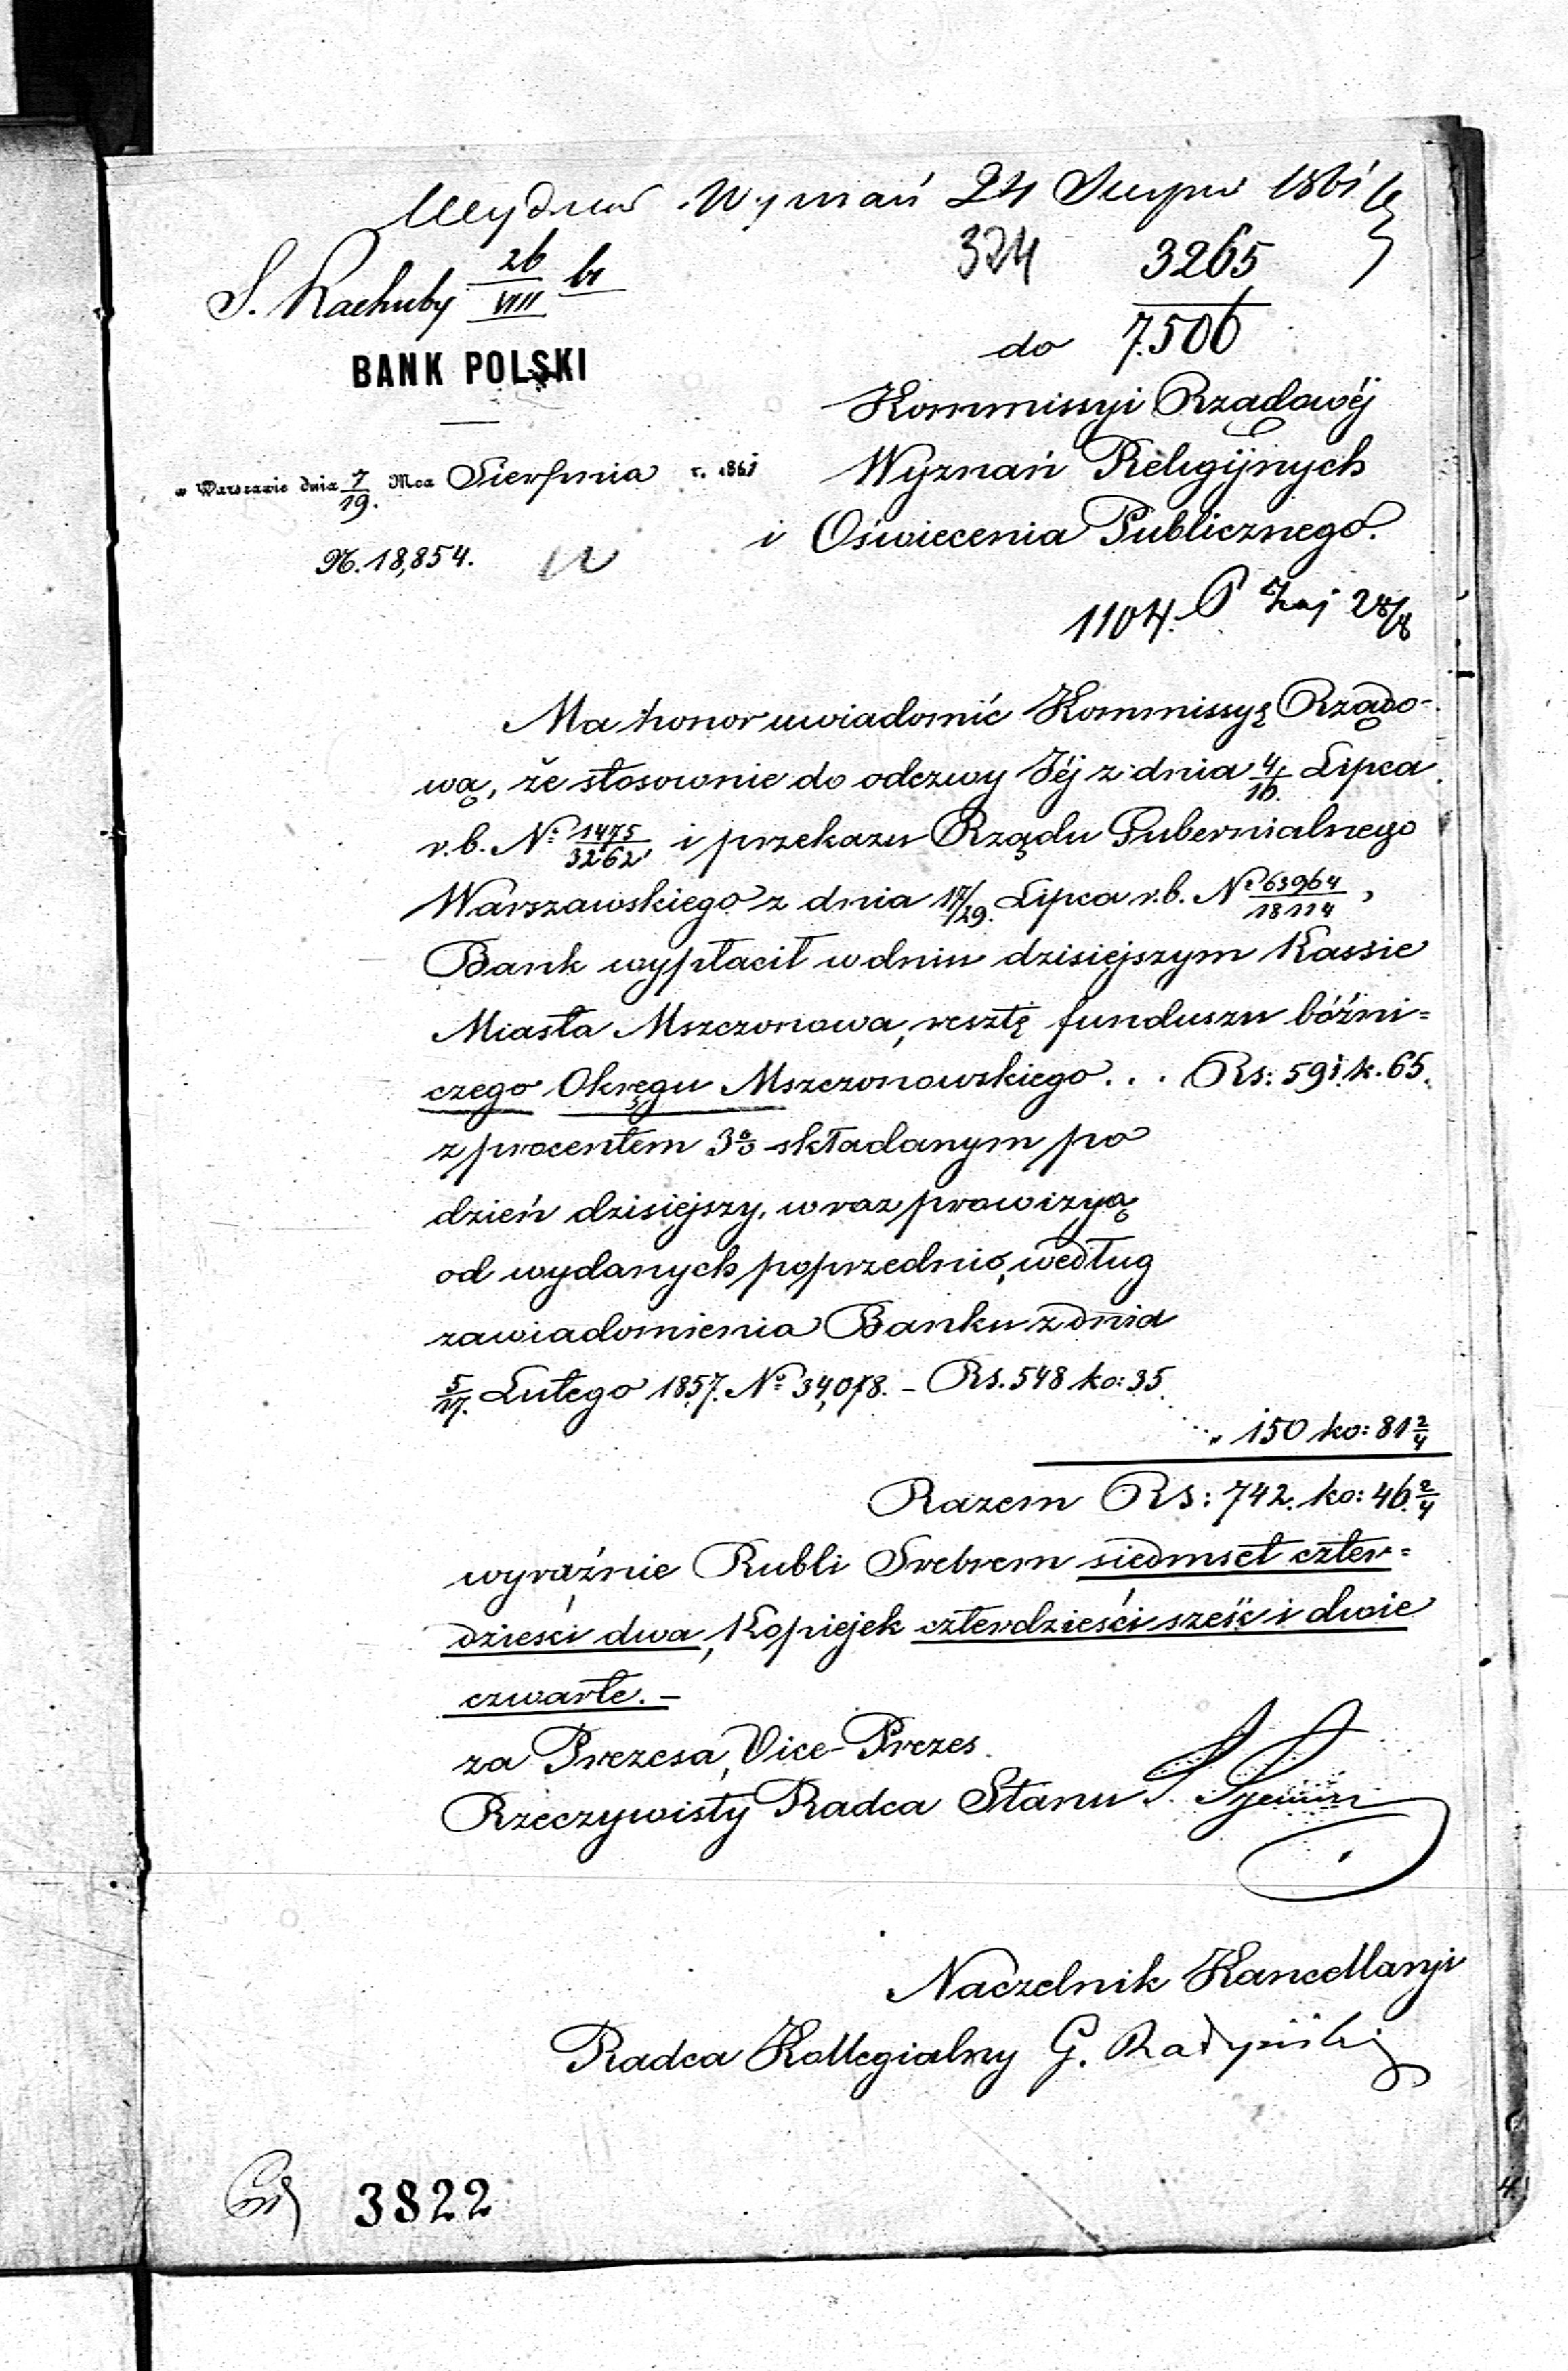 Wydział Wyznań 24 Sierpnia 1861
324 3265
S. Rachuby 26/VIII br
do 7506
BANK POLSKI
Kommissyi Rządowéj
w Warszawie dnia 7/19. Mca Sierpnia r. 1861
Wyznań Religijnych
i Oświecenia Publicznego.
N. 18,854.
1104. P Zaj 28/8
Ma honor uwiadomić Kommissyę Rządo-
wą, że stosownie do odezwy Jéj z dnia 4/16. Lipca
r.b. No 1475/3262, i przekazu Rządu Gubernialnego
Warszawskiego z dnia 17/29. Lipca r.b. No 63964/18114,
Bank wypłacił w dniu dzisiejszym Kassie
Miasta Mszczonowa, resztę funduszu bóźni=
czego Okręgu Mszczonowskiego... Rs: 591. k. 65.
z procentem 3% składanym po
dzień dzisiejszy, wraz prowizyą
od wydanych poprzednio, według
zawiadomienia Banku z dnia
5/17. Lutego 1857. No 34,078. – Rs. 548 ko: 35
„ 150 ko: 81 2/4
Razem Rs: 742. ko: 46. 2/4
wyraźnie Rubli Srebrem siedmset czter=
dzieści dwa, Kopiejek czterdzieści sześć i dwie
czwarte. –
za Prezesa, Vice-Prezes
Rzeczywisty Radca Stanu
Naczelnik Kancellaryi
Radca Kollegialny G.
3822